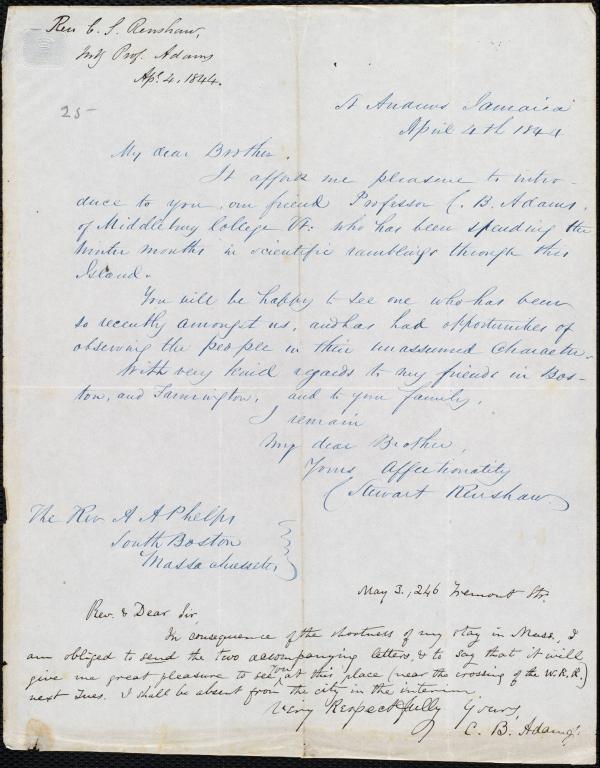 Rev C. S. Renshaw,
Prof. Adams
Ap. 4, 1844.
25-
St Andrews Jamaica
April 4th 1844
My dear Brother.
It affords me pleasure to intro-
duce to you, our friend Professor C. B. Adams,
of Middlebury College Vt: who has been spending the
winter months in scientific ramblings through this
Island.
You will be happy to see one who has been
so recently amongst us, and has had opportunities of
observing the people in their unassumed character.
With very kind regards to my friends in Bos-
ton, and Farmington, and to your family,
I remain
My dear Brother,
Yours Affectionatily
C Stewart Renshaw
The Rev A A Phelps
South Boston
Massachusetts
May 3., 246 Tremont Str.
Rev. & Dear Sir,
In consequence of the shortness of my stay in Mass., I
am obliged to send the two accompanying letters, & to say that it will
give me great pleasure to see you at this place (near the crossing of the W. R. R.)
next Tues. I shall be absent from the city in the interim.
Very Respectfully Yours,
C. B. Adams.